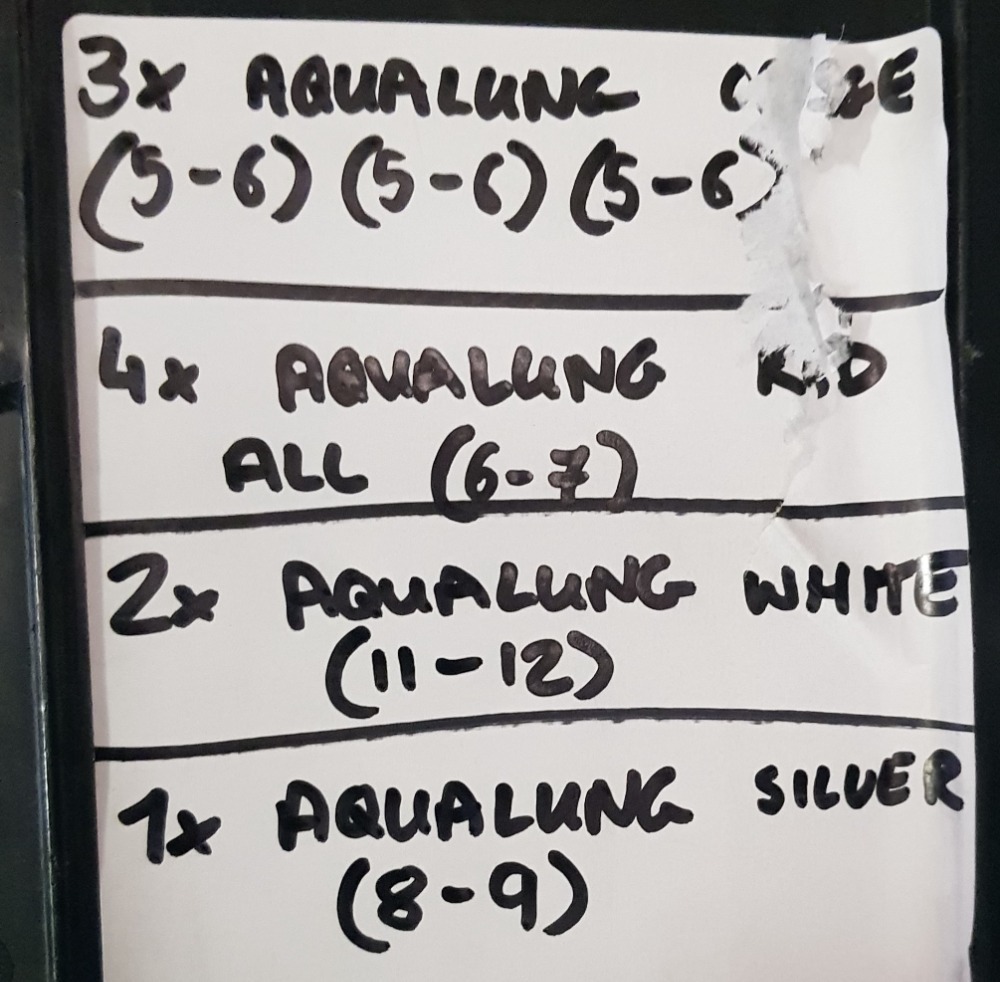 3x AQUALUNG
(5-6) (5-6) (5-6)
4x AQUALUNG
ALL (6-7)
2x AQUALUNG WHITE
(11-12)
1x AQUALUNG SILVER
(8-9)